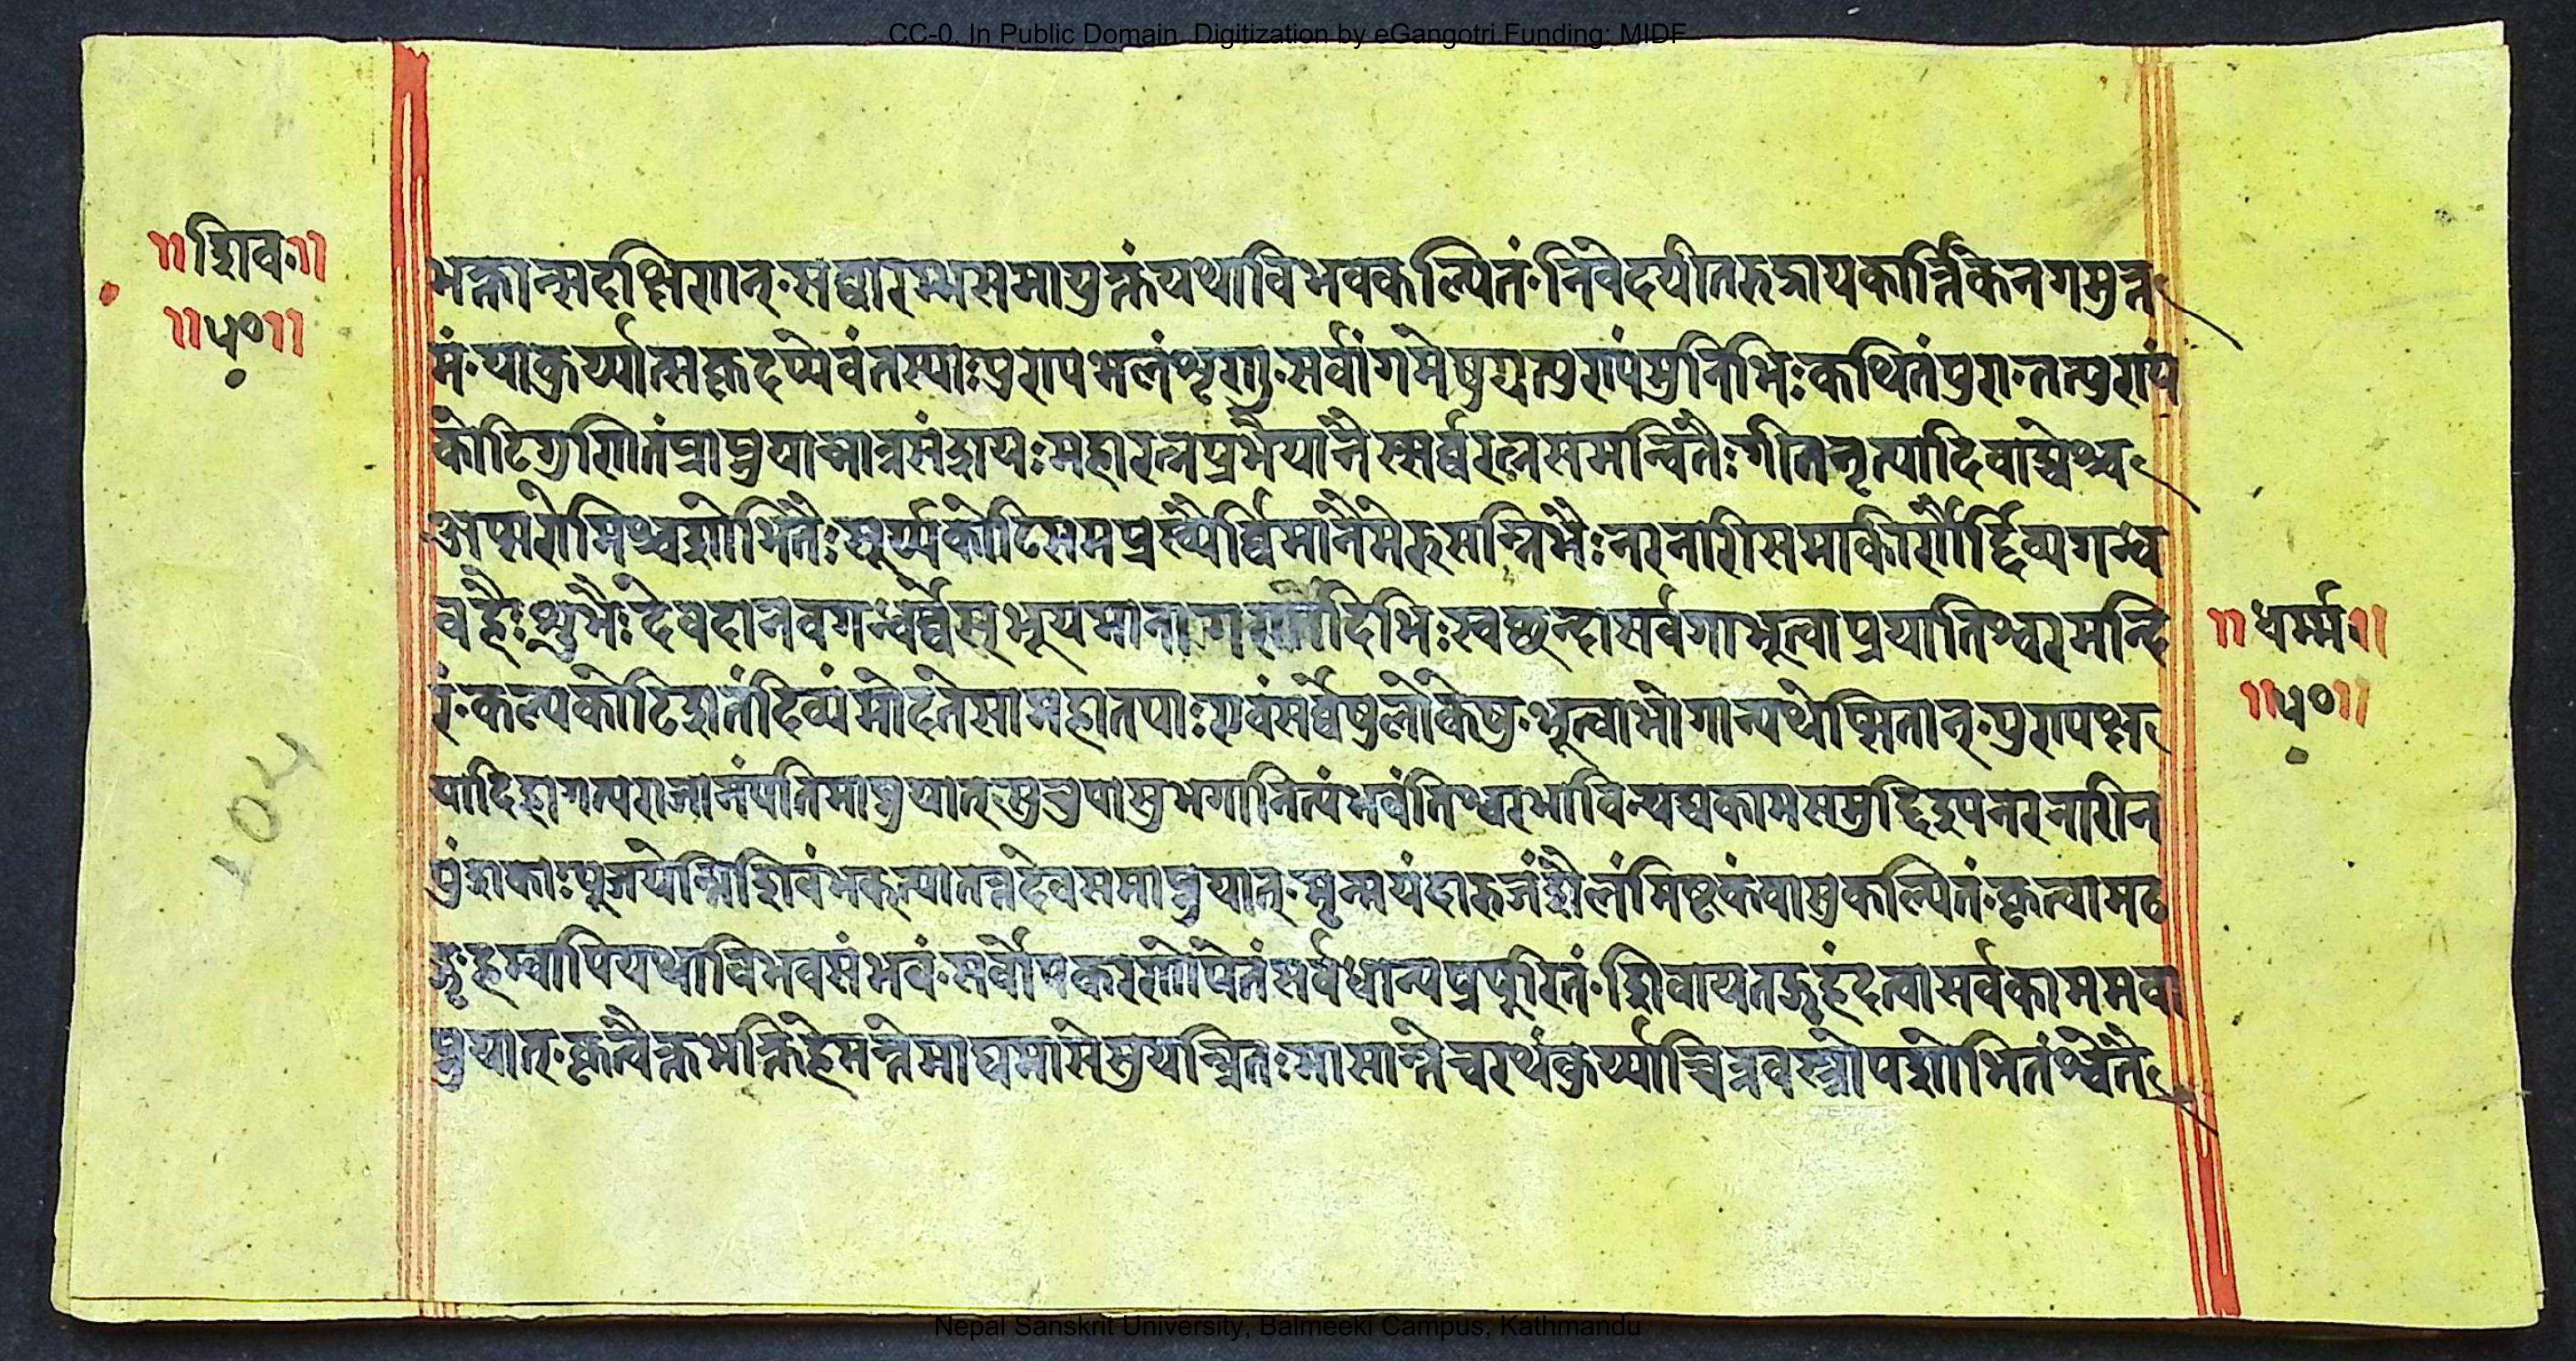 CC-0. In Public Domain. Digitization by eGangotri Funding: MIDF
॥शिव॰॥
॥५०॥
भक्तान्सदक्षिणान्॰सद्वारम्भसमायुक्तंयथाविभवकल्पितं॰निवेदयीतरुद्रायकार्त्तिकेनगमुत्त
मं॰याकुर्य्यात्सकृदप्येवंतस्याःपुण्यफलंशृणु॰सर्वांगमेषुयत्पुण्यंमुनिभिःकथितंपुरा॰तत्पुण्यं
कोटिगुणितंप्राप्नुयान्नात्रसंशयःमहारत्नप्रभैयानैस्सर्व्वरत्नसमन्वितैःगीतनृत्यादिवाद्यैश्च
अप्सरोभिश्चशोभितैःसूर्य्यकोटिसमप्रख्यैर्व्विमानैमेरुसन्निभैःनरनारिसमाकीर्णैर्द्दिव्यगन्ध
वहैःशुभैःदेवदानवगन्धर्व्वैस्भूयमाना दिभिःस्वछन्दासर्वगाभूत्वाप्रयातिश्वरमन्दि
रं॰कल्पकोटिशतंदिव्यंमोदतेसामहातपाःएवंसर्व्वेषुलोकेषु॰भूत्वाभोगान्यथेप्सितान्॰पुण्यक्ष
यादिहागत्यराजानंपतिमाप्नुयात्सुरुपासुभगानित्यंभवंतिश्वरभाविन्यद्यकामसमुद्दि नरनारीन
पुंशकाःपूजयेन्निशिवंभक्त्यातत्तदेवसमाप्नुयात्॰मृन्मयंदारुजंशैलंमिष्टकंवासुकल्पितं॰कृत्वामठ
ङ्गृहम्वापियथाविभवसंभवं॰सर्वोपकरणोपेतंसर्वधान्यप्रपूरितं॰शिवायतङ्गृहंदत्वासर्वकाममवा
प्नुयात्॰कृत्वैक्तभक्तिहेमन्तेमाघमासेसुयन्त्रितःमासान्तेचरथंकुर्य्याच्चित्रवस्त्रोपशोभितंश्वेतै
॥धर्म्म॰॥
॥५०॥
104
Nepal Sanskrit University, Balmeeki Campus, Kathmandu